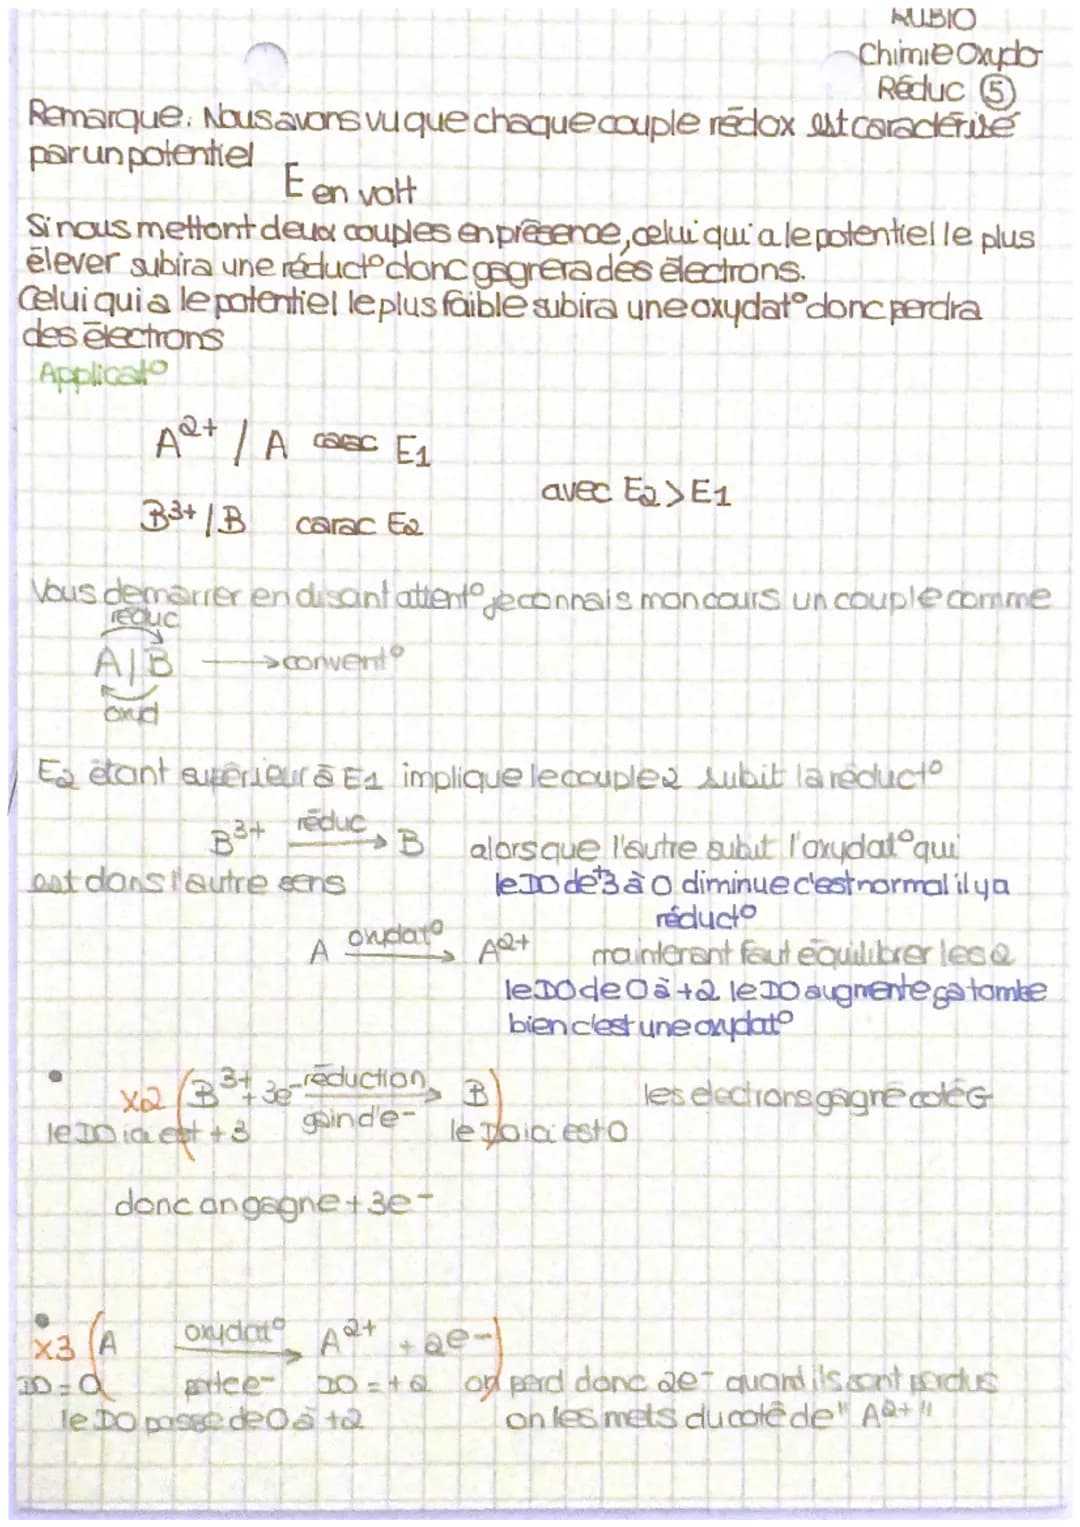 RUBIO
Chimie Oxydo
Réduc ⑤
Remarque: Nous avons vu que chaque couple rédox est caractérisé
par un potentiel
E en volt
Si nous mettont deux couples en présence, celui qui a le potentiel le plus
élever subira une réduct° donc gagnera des électrons.
Celui qui a le potentiel le plus faible subira une oxydat° donc perdra
des électrons
Applicat°
A²⁺ / A carac E₁
avec E₂ > E₁
B³⁺ / B carac E₂
Vous demarrer en disant attent° je connais mon cours un couple comme
réduc
A / B → convent°
oxyd
E₂ étant supérieur à E₁ implique le couple 2 subit la réduct°
B³⁺ réduc → B alors que l'autre subit l'oxydat° qui
est dans l'autre sens le DO de +3 à 0 diminue c'est normal il y a
réduct°
A oxydat° → A²⁺ maintenant faut équilibrer les 2
le DO de 0 à +2 le DO augmente ça tombe
bien c'est une oxydat°
• x2 (B³⁺ + 3e⁻ réduction → B) les electrons gagné coté G
le DO ici est +3 gain d'e- le DO ici est 0
donc on gagne + 3e-
• x3 (A oxydat° → A²⁺ + 2e-)
DO = 0 perte e- DO = +2 on perd donc 2e- quand ils sont perdus
le DO passe de 0 à +2 on les mets du coté de "A²⁺"